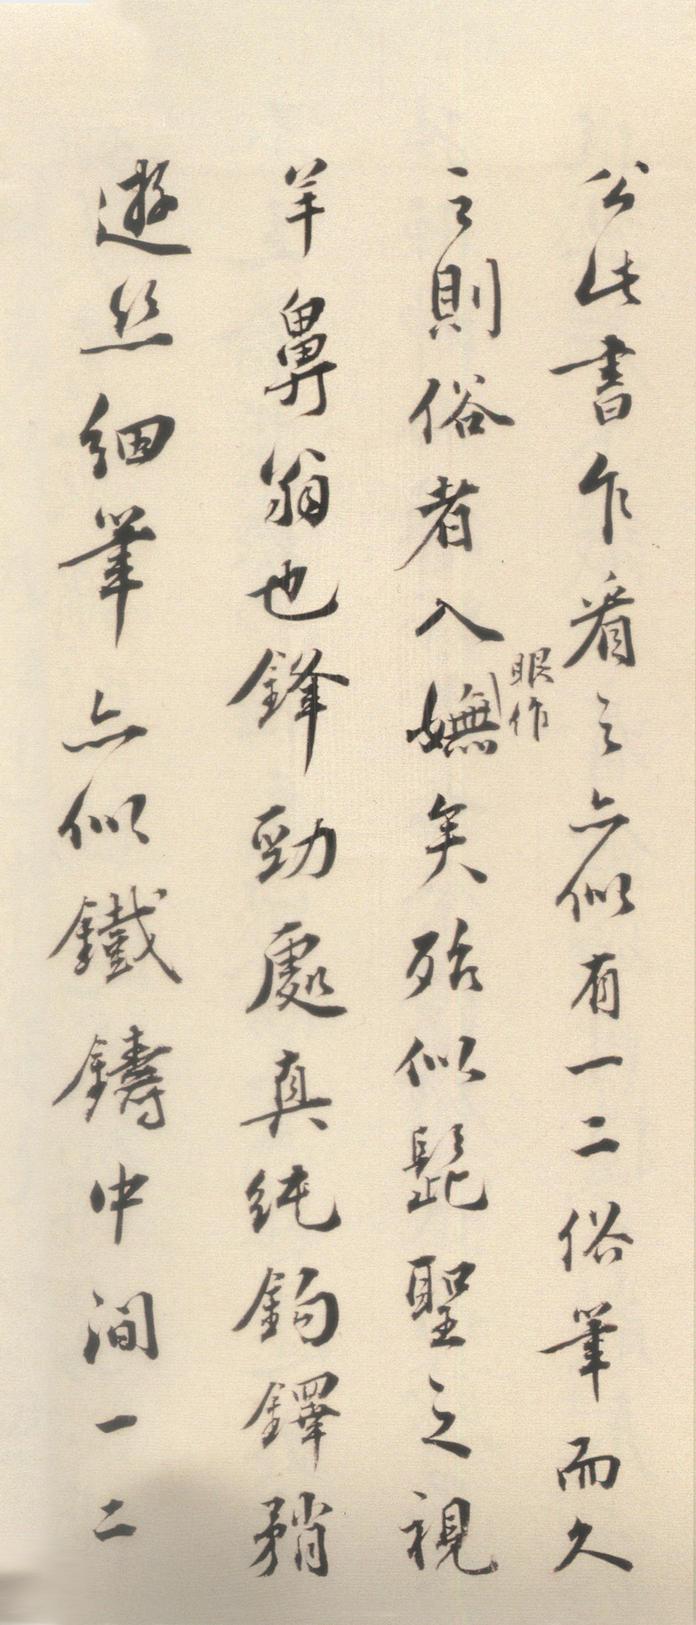 公此書乍看之亦似有一二俗筆而久
之則俗者入嫵矣殆似髭聖之視
眼作
羊鼻翁也鋒勁處真純鉤鐸矟
遊絲細筆亦似鐵鑄中間一二